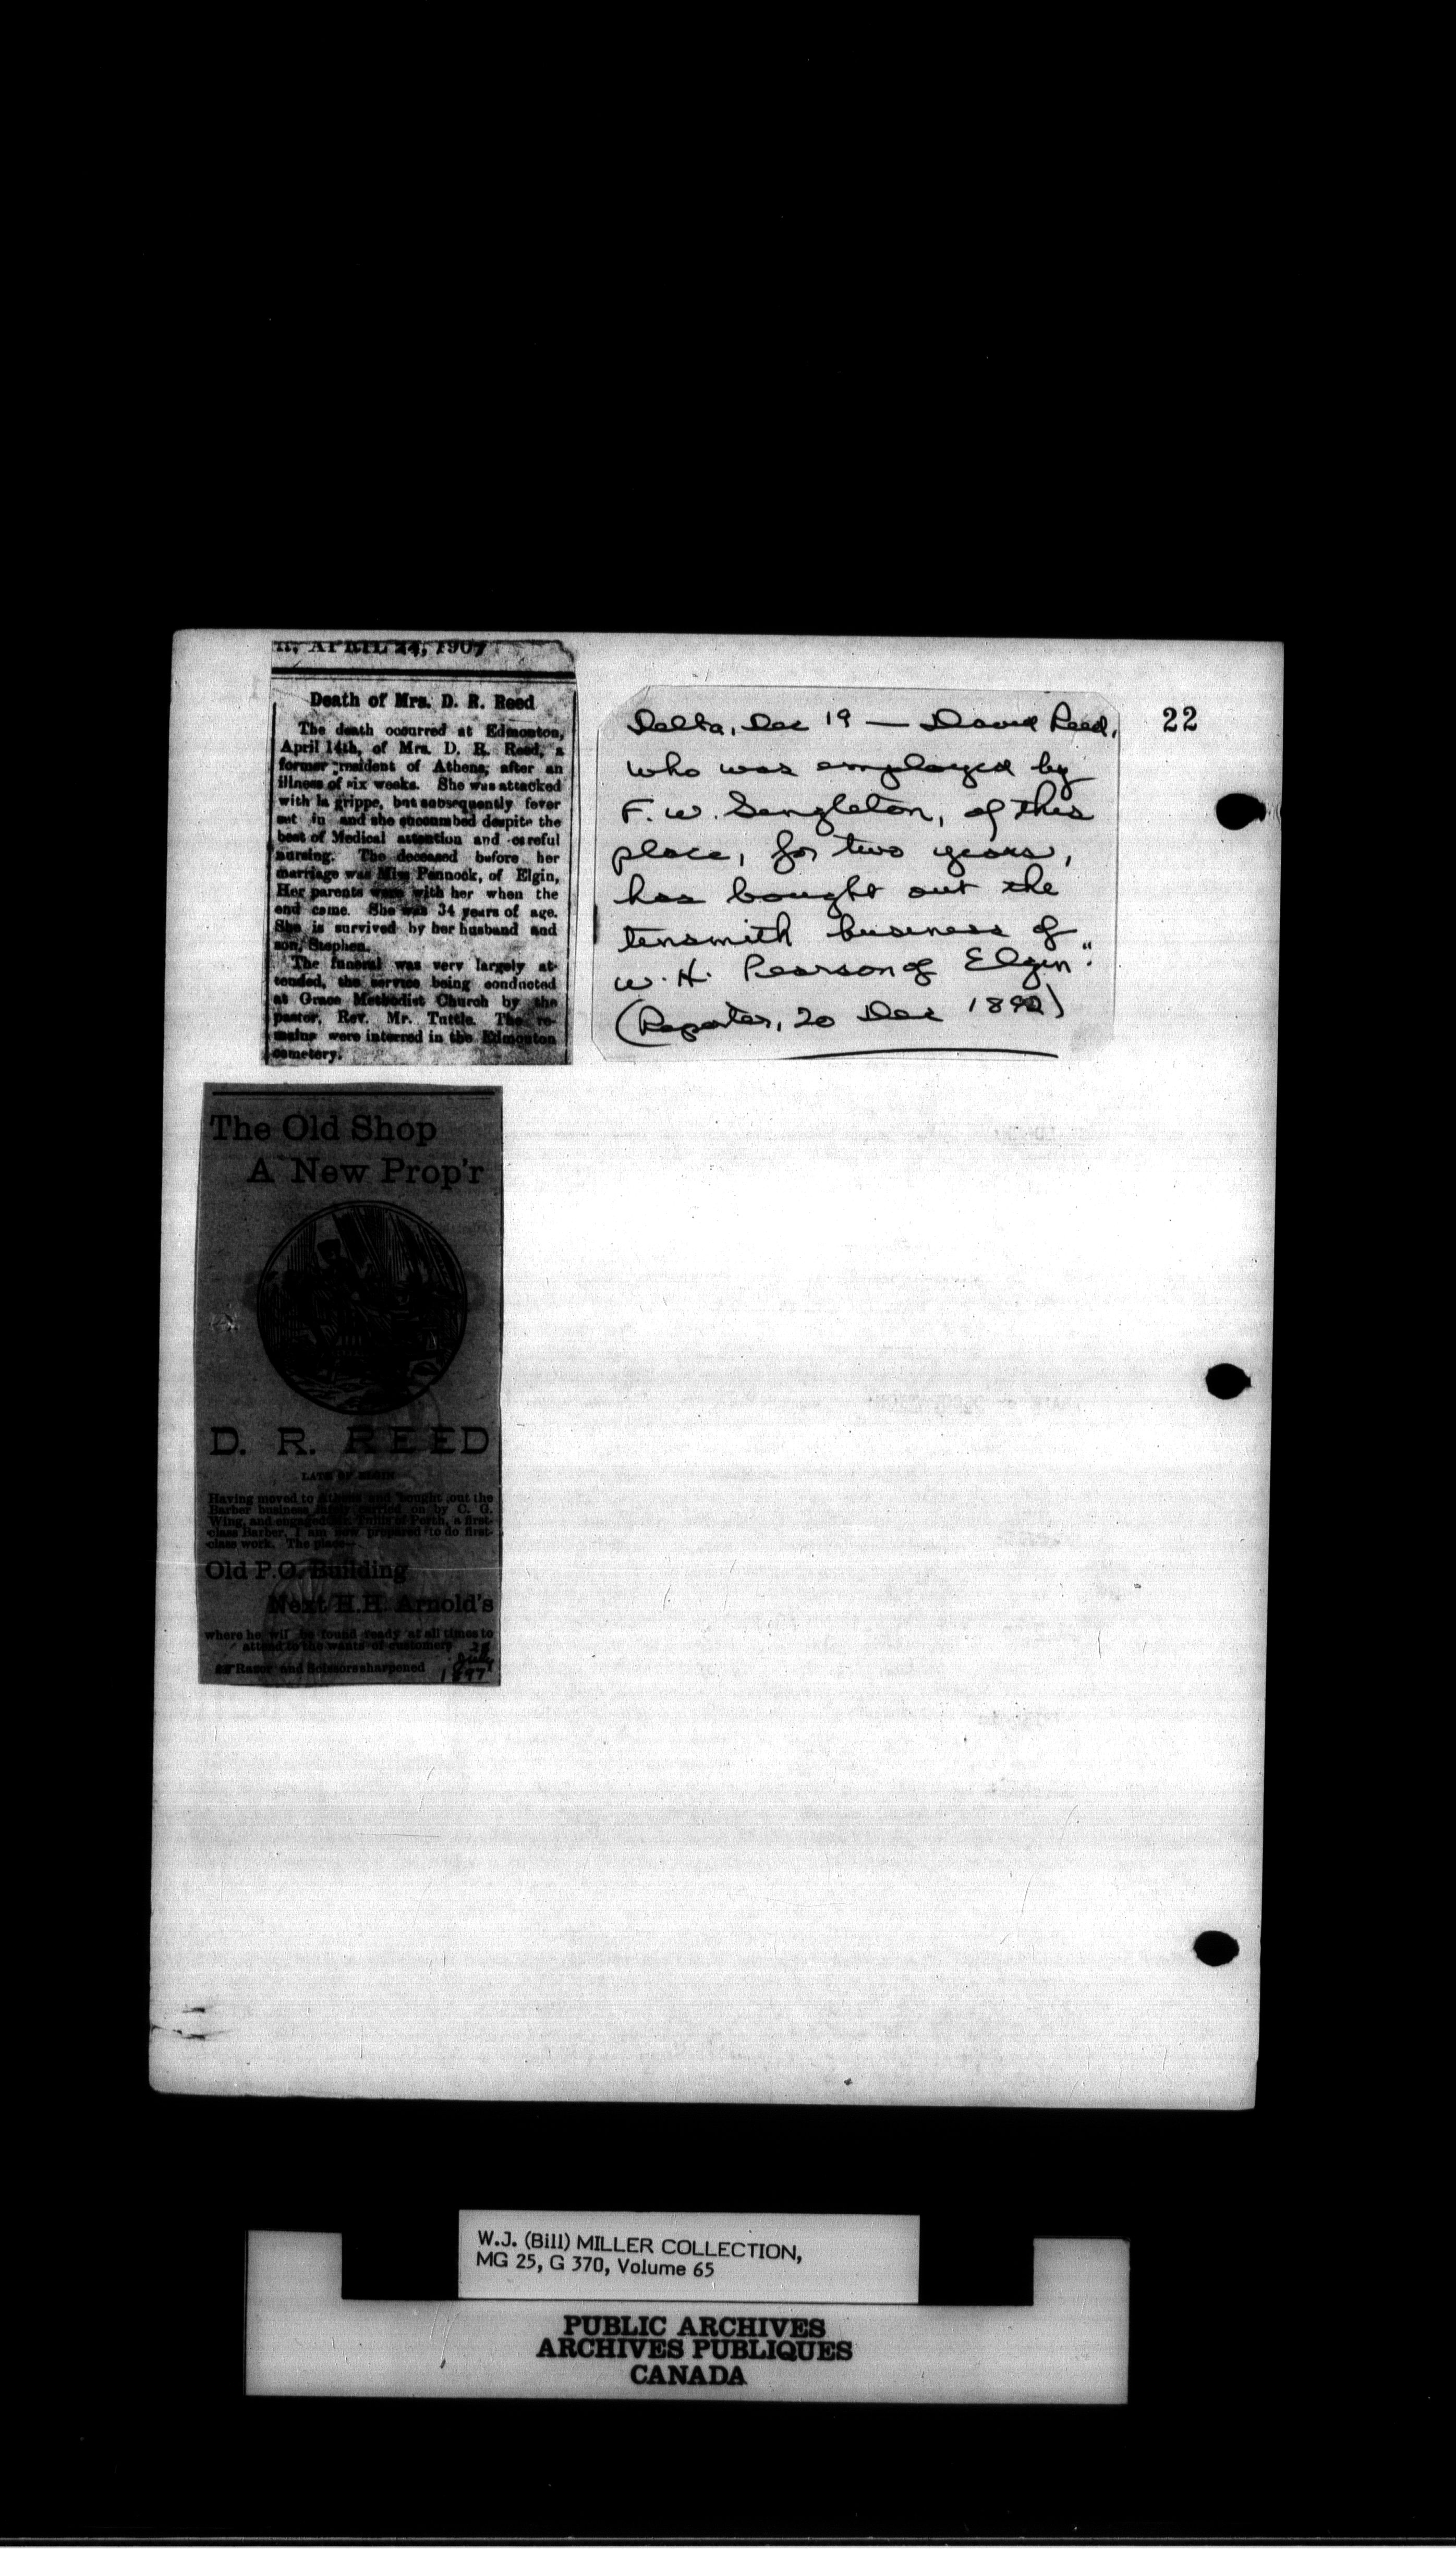 APRIL 24, 1907
Death of Mrs. D. R. Reed
The death occurred at Edmonton,
April 14th, of Mrs. D. R. Reed, a
former resident of Athens, after an
illness of six weeks. She was attacked
with la grippe, but subsequently fever
set in and she succumbed despite the
best of Medical attention and careful
nursing. The deceased before her
marriage was Miss Pennock, of Elgin,
Her parents were with her when the
end came. She was 34 years of age.
She is survived by her husband and
son, Stephen.
The funeral was very largely at-
tended, the service being conducted
at Grace Methodist Church by the
pastor, Rev. Mr. Tuttle. The re-
mains were interred in the Edmonton
cemetery.
Delta, Dec 19 — David Reed,
who was employed by
F. W. Singleton, of this
place, for two years,
has bought out the
tinsmith business of
W. H. Pearson of Elgin."
(Reporter, 20 Dec 1892)
22
The Old Shop
A New Prop'r
D. R. REED
LATE OF ELGIN
Having moved to Athens and bought out the
Barber business lately carried on by C. G.
Wing, and engaged Mr. of Perth, a first-
class Barber, I am now prepared to do first-
class work. The place—
Old P.O. Building
Next H.H. Arnold's
where he wil be found ready at all times to
attend to the wants of customers
Razor and Scissors sharpened
28
July
1897
W.J. (Bill) MILLER COLLECTION,
MG 25, G 370, Volume 65
PUBLIC ARCHIVES
ARCHIVES PUBLIQUES
CANADA